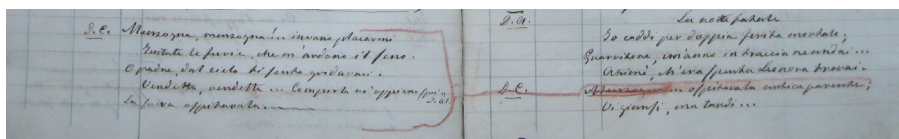 D.C. Menzogna, menzogna!.. invano placarmi
Tentate le furie, che m'ardono il seno.
O padre, dal cielo ti sento gridarmi:
Vendetta, vendetta... Compiuta vo' appieno
La ospitavala
D.A. La notte fatale
Io caddi per doppia ferita mortale;
Guaritone, un anno in traccia ne andai...
Ahimè, ch'era spenta Leonora trovai.
D.C. Menzogna... ospitavala antica parente;
Vi giunsi, ma tardi...